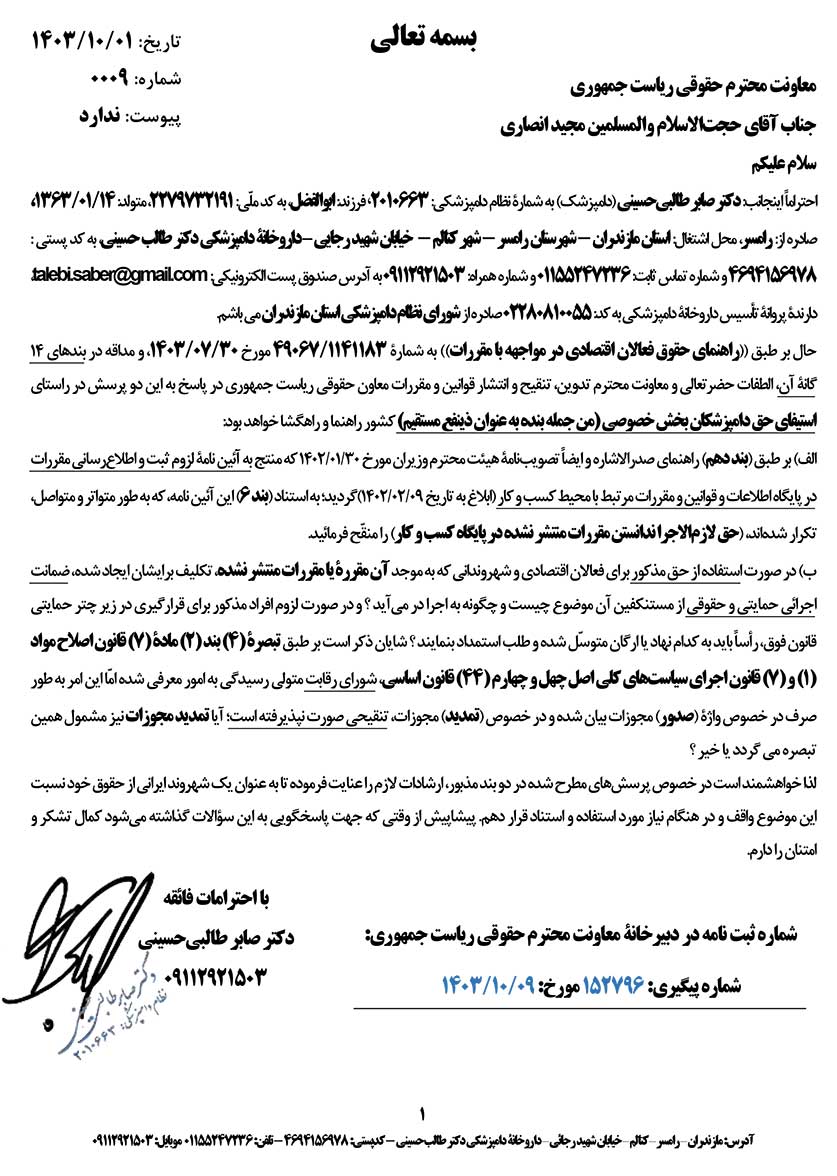 بسمه تعالی
تاریخ: ۱۴۰۳/۱۰/۰۱
شماره: ۰۰۰۹
پیوست: ندارد
معاونت محترم حقوقی ریاست جمهوری
جناب آقای حجت‌الاسلام والمسلمین مجید انصاری
سلام علیکم
احتراماً اینجانب: دکتر صابر طالبی‌حسینی (دامپزشک) به شمارهٔ نظام دامپزشکی: ۲۰۱۰۶۶۳، فرزند: ابوالفضل، به کد ملّی: ۲۲۷۹۷۳۲۱۹۱، متولد: ۱۳۶۳/۰۱/۱۴،
صادره از: رامسر، محل اشتغال: استان مازندران – شهرستان رامسر – شهر کتالم – خیابان شهید رجایی – داروخانهٔ دامپزشکی دکتر طالب حسینی، به کد پستی :
۴۶۹۴۱۵۶۹۷۸ و شماره تماس ثابت: ۰۱۱۵۵۲۴۷۲۳۶ و شماره همراه: ۰۹۱۱۲۹۲۱۵۰۳ به آدرس صندوق پست الکترونیکی: talebi.saber@gmail.com،
دارندهٔ پروانهٔ تأسیس داروخانهٔ دامپزشکی به کد: ۰۲۲۸۰۸۱۰۰۵۵ صادره از شورای نظام دامپزشکی استان مازندران می باشم.
حال بر طبق ((راهنمای حقوق فعالان اقتصادی در مواجهه با مقررات)) به شمارهٔ ۴۹۰۶۷/۱۱۴۱۱۸۳ مورخ ۱۴۰۳/۰۷/۳۰، و مداقه در بندهای ۱۴
گانهٔ آن، الطفات حضرتعالی و معاونت محترم تدوین، تنقیح و انتشار قوانین و مقررات معاون حقوقی ریاست جمهوری در پاسخ به این دو پرسش در راستای
استیفای حق دامپزشکان بخش خصوصی (من جمله بنده به عنوان ذینفع مستقیم) کشور راهنما و راهگشا خواهد بود:
الف) بر طبق (بند دهم) راهنمای صدرالاشاره و ایضاً تصویب‌نامهٔ هیئت محترم وزیران مورخ ۱۴۰۲/۰۱/۳۰ که منتج به آئین نامهٔ لزوم ثبت و اطلاع‌رسانی مقررات
در پایگاه اطلاعات و قوانین و مقررات مرتبط با محیط کسب و کار (ابلاغ به تاریخ ۱۴۰۲/۰۲/۰۹) گردید؛ به استناد (بند ۶) این آئین نامه، که به طور متواتر و متواصل،
تکرار شده‌اند، (حق لازم‌الاجرا ندانستن مقررات منتشر نشده در پایگاه کسب و کار) را منقّح فرمائید.
ب) در صورت استفاده از حق مذکور برای فعالان اقتصادی و شهروندانی که به موجد آن مقررهٔ یا مقررات منتشر نشده، تکلیف برایشان ایجاد شده، ضمانت
اجرائی حمایتی و حقوقی از مستنکفین آن موضوع چیست و چگونه به اجرا در می‌آید ؟ و در صورت لزوم افراد مذکور برای قرارگیری در زیر چتر حمایتی
قانون فوق، رأساً باید به کدام نهاد یا ارگان متوسّل شده و طلب استمداد بنمایند ؟ شایان ذکر است بر طبق تبصرهٔ (۴) بند (۲) مادهٔ (۷) قانون اصلاح مواد
(۱) و (۷) قانون اجرای سیاست‌های کلی اصل چهل و چهارم (۴۴) قانون اساسی، شورای رقابت متولی رسیدگی به امور معرفی شده امّا این امر به طور
صرف در خصوص واژهٔ (صدور) مجوزات بیان شده و در خصوص (تمدید) مجوزات، تنقیحی صورت نپذیرفته است؛ آیا تمدید مجوزات نیز مشمول همین
تبصره می گردد یا خیر ؟
لذا خواهشمند است در خصوص پرسش‌های مطرح شده در دو بند مذبور، ارشادات لازم را عنایت فرموده تا به عنوان یک شهروند ایرانی از حقوق خود نسبت
این موضوع واقف و در هنگام نیاز مورد استفاده و استناد قرار دهم. پیشاپیش از وقتی که جهت پاسخگویی به این سؤالات گذاشته می‌شود کمال تشکر و
امتنان را دارم.
با احترامات فائقه
دکتر صابر طالبی‌حسینی
۰۹۱۱۲۹۲۱۵۰۳
شماره ثبت نامه در دبیرخانهٔ معاونت محترم حقوقی ریاست جمهوری:
شماره پیگیری: ۱۵۲۷۹۶ مورخ: ۱۴۰۳/۱۰/۰۹
دکتر صابر طالبی حسینی
نظام دامپزشکی: ۲۰۱۰۶۶۳
۱
آدرس: مازندران – رامسر – کتالم – خیابان شهید رجائی – داروخانهٔ دامپزشکی دکتر طالب حسینی – کدپستی: ۴۶۹۴۱۵۶۹۷۸ – تلفن: ۰۱۱۵۵۲۴۷۲۳۶ موبایل: ۰۹۱۱۲۹۲۱۵۰۳